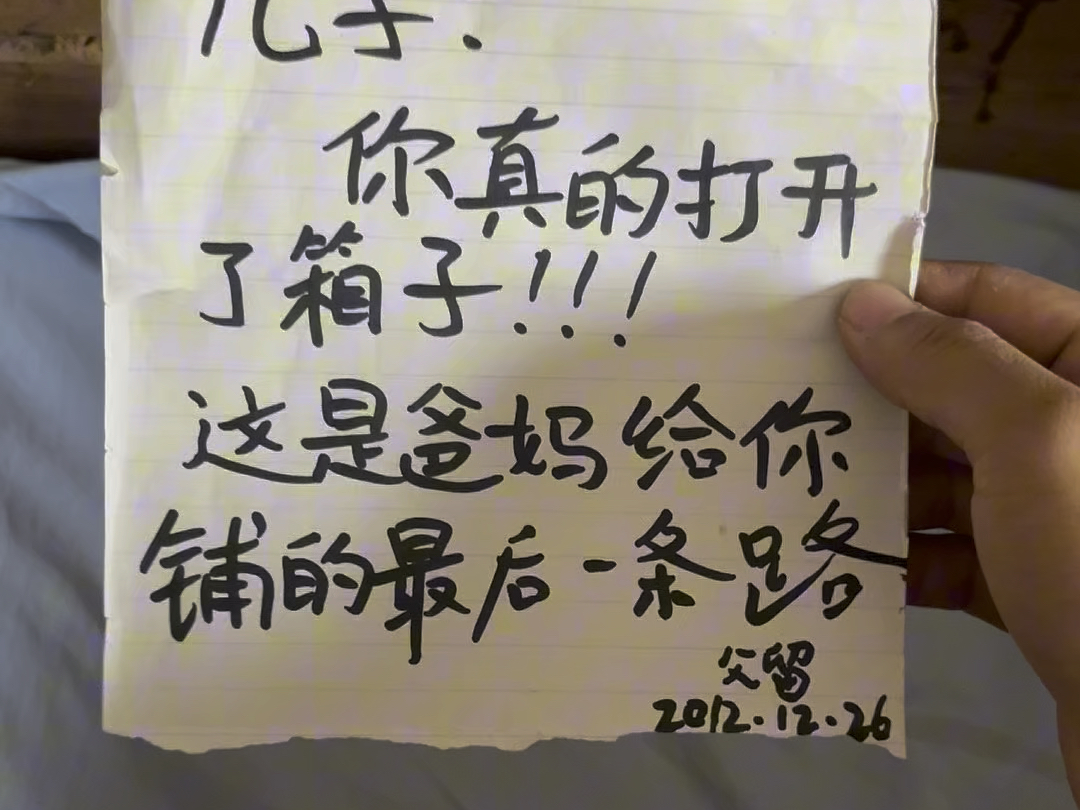 儿子.
你真的打开
了箱子!!!
这是爸妈给你
铺的最后一条路
父留
2012.12.26